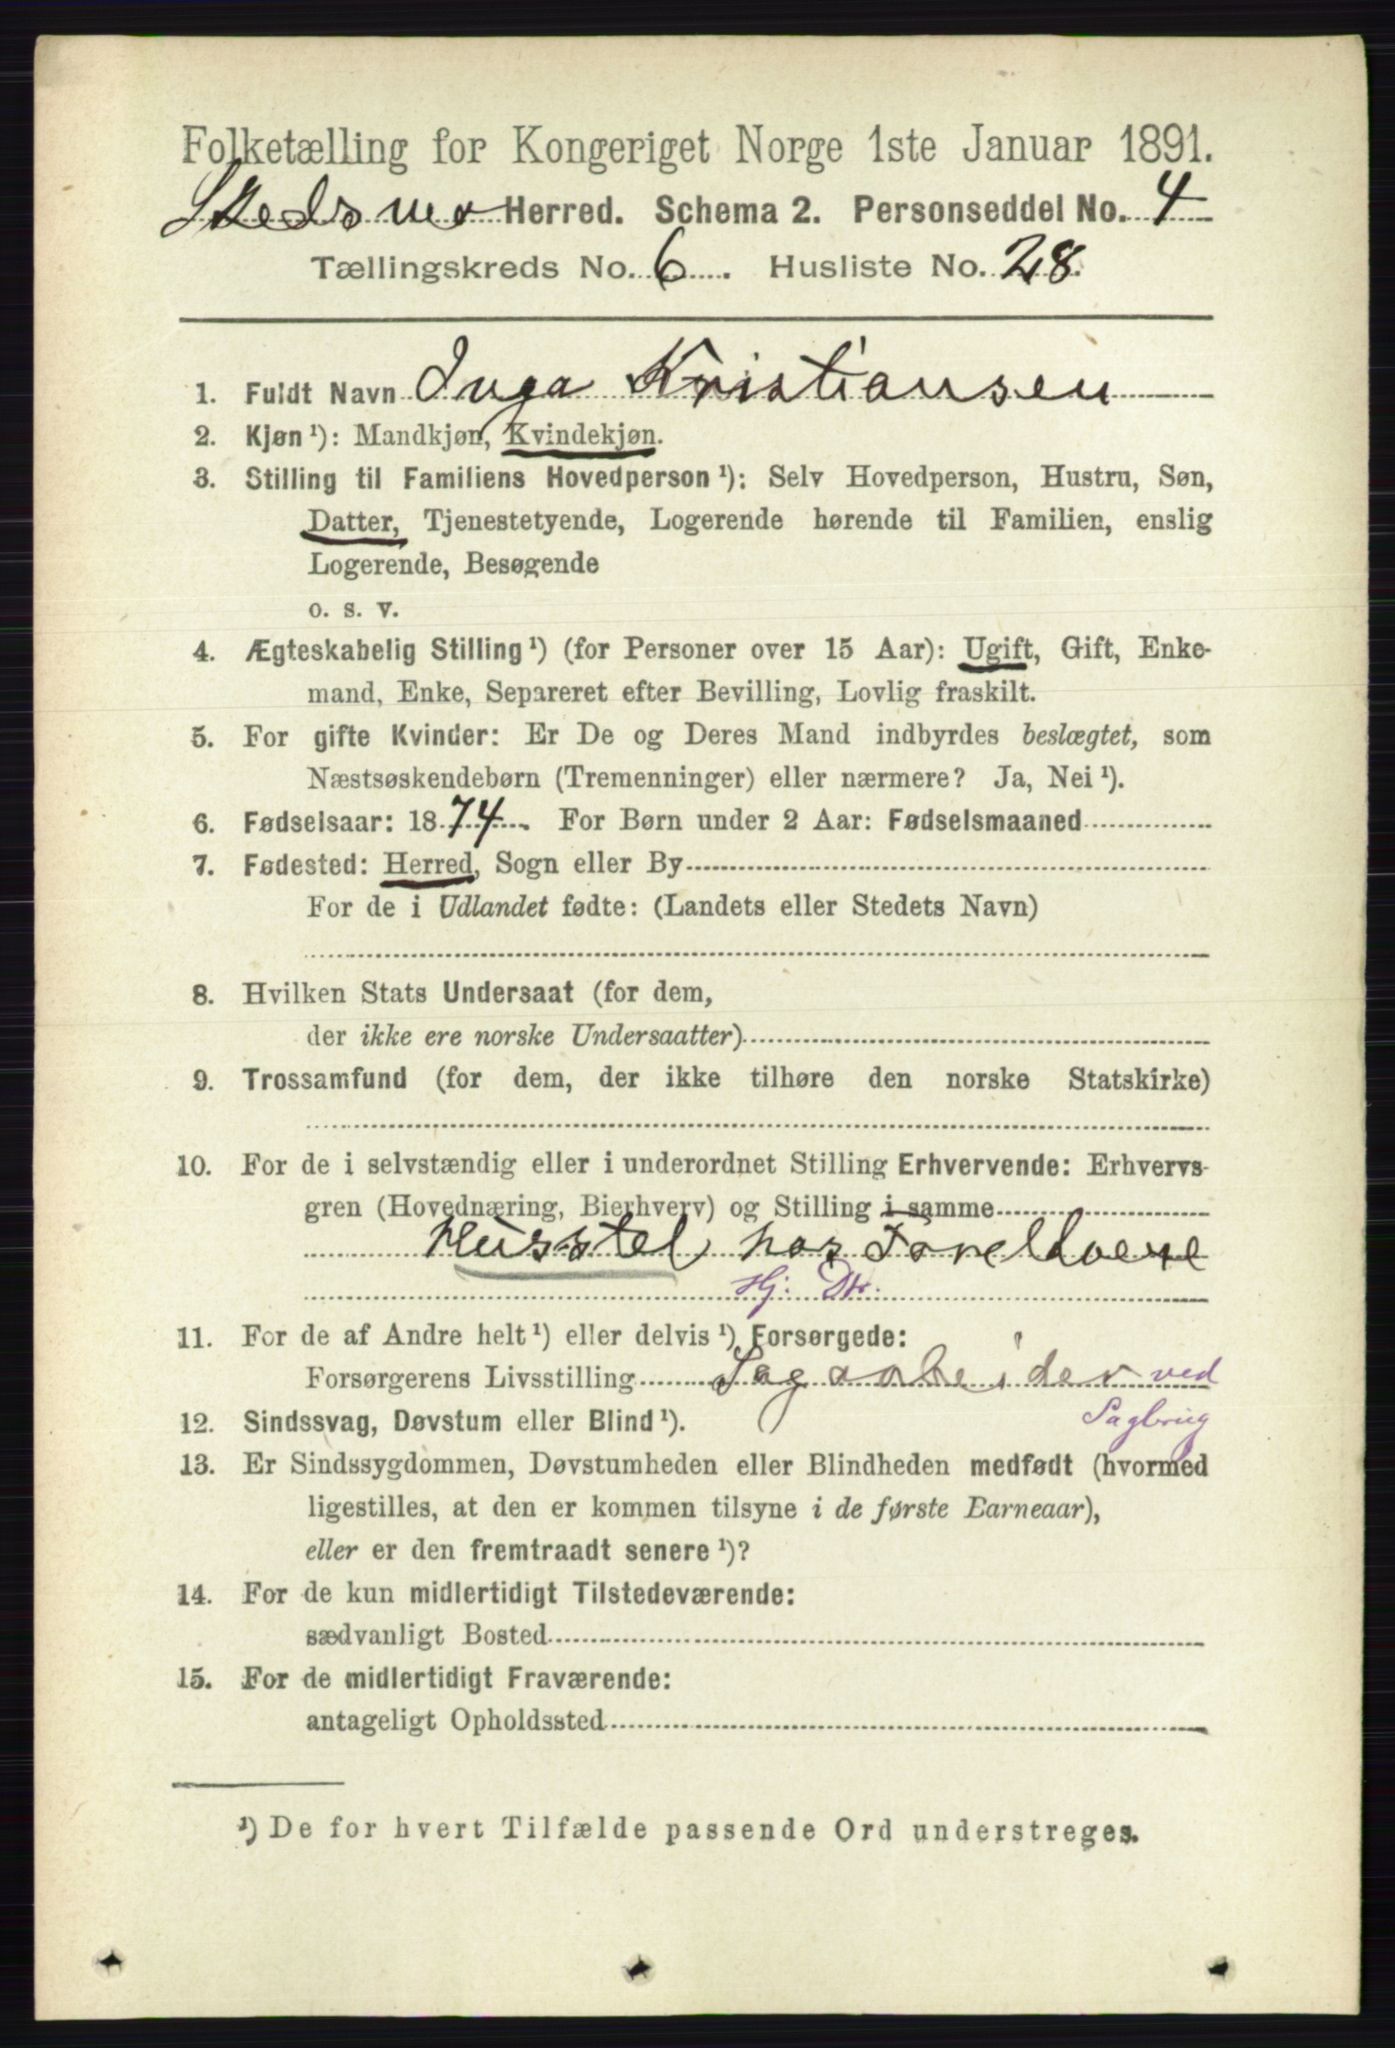 Folketælling for Kongeriget Norge 1ste Januar 1891.
Skedsmo Herred. Schema 2. Personseddel No. 4
Tællingskreds No. 6. Husliste No. 28.
1. Fuldt Navn Inga Kristiansen
2. Kjøn ¹): Mandkjøn, Kvindekjøn.
3. Stilling til Familiens Hovedperson ¹): Selv Hovedperson, Hustru, Søn,
Datter, Tjenestetyende, Logerende hørende til Familien, enslig
Logerende, Besøgende
o. s. v.
4. Ægteskabelig Stilling ¹) (for Personer over 15 Aar): Ugift, Gift, Enke-
mand, Enke, Separeret efter Bevilling, Lovlig fraskilt.
5. For gifte Kvinder: Er De og Deres Mand indbyrdes beslægtet, som
Næstsøskendebørn (Tremenninger) eller nærmere? Ja, Nei ¹).
6. Fødselsaar: 1874. For Børn under 2 Aar: Fødselsmaaned
7. Fødested: Herred, Sogn eller By
For de i Udlandet fødte: (Landets eller Stedets Navn)
8. Hvilken Stats Undersaat (for dem,
der ikke ere norske Undersaatter)
9. Trossamfund (for dem, der ikke tilhøre den norske Statskirke)
10. For de i selvstændig eller i underordnet Stilling Erhvervende: Erhvervs-
gren (Hovednæring, Bierhverv) og Stilling i samme
Husstel hos Foreldrene
Hj. Dtr.
11. For de af Andre helt ¹) eller delvis ¹) Forsørgede:
Forsørgerens Livsstilling Sagarbeider ved
12. Sindssvag, Døvstum eller Blind ¹). Sagbrug
13. Er Sindssygdommen, Døvstumheden eller Blindheden medfødt (hvormed
ligestilles, at den er kommen tilsyne i de første Barneaar),
eller er den fremtraadt senere ¹)?
14. For de kun midlertidigt Tilstedeværende:
sædvanligt Bosted
15. For de midlertidigt Fraværende:
antageligt Opholdssted
¹) De for hvert Tilfælde passende Ord understreges.